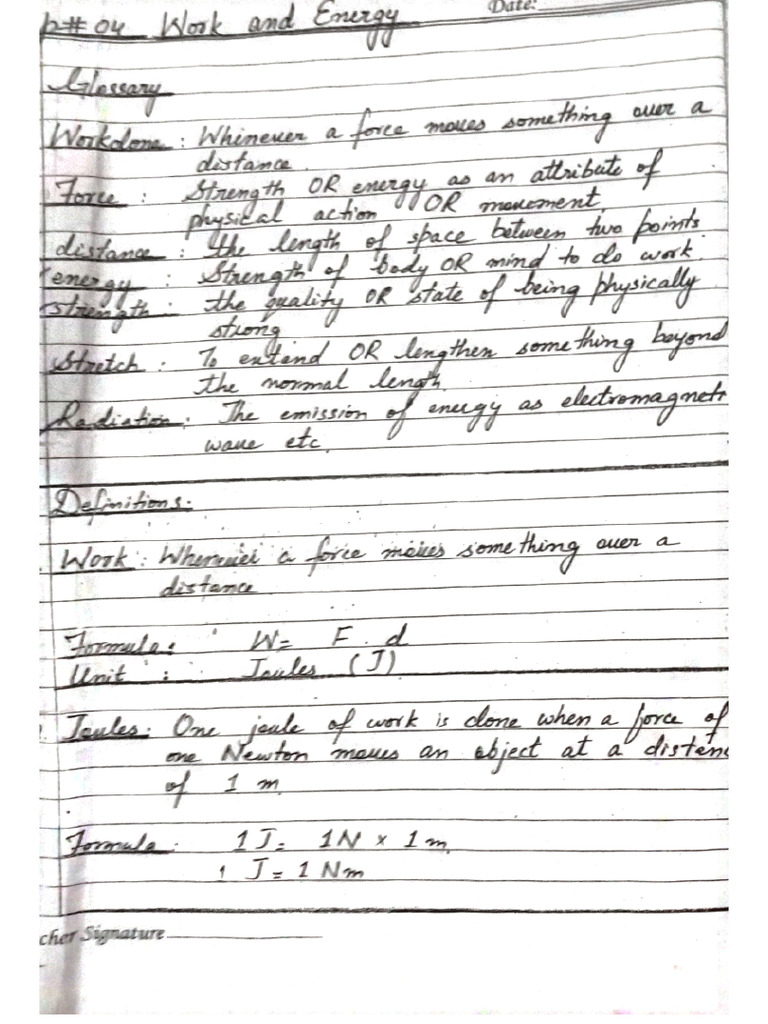 p# 04 Work and Energy
Date:
Glossary
Workdone : Whenever a force moves something over a
distance.
Force : Strength OR energy as an attribute of
physical action OR movement.
distance : the length of space between two points
energy : Strength of body OR mind to do work.
strength : the quality OR state of being physically
strong
Stretch : To extend OR lengthen something beyond
the normal length.
Radiation : The emission of energy as electromagnet
wave etc.
Definitions:
Work : Whenever a force moves something over a
distance
Formula : W= F . d
Unit : Joules (J)
Joules : One joule of work is done when a force of
one Newton moves an object at a distan
of 1 m
Formula : 1 J = 1N × 1 m
1 J = 1 Nm
cher Signature